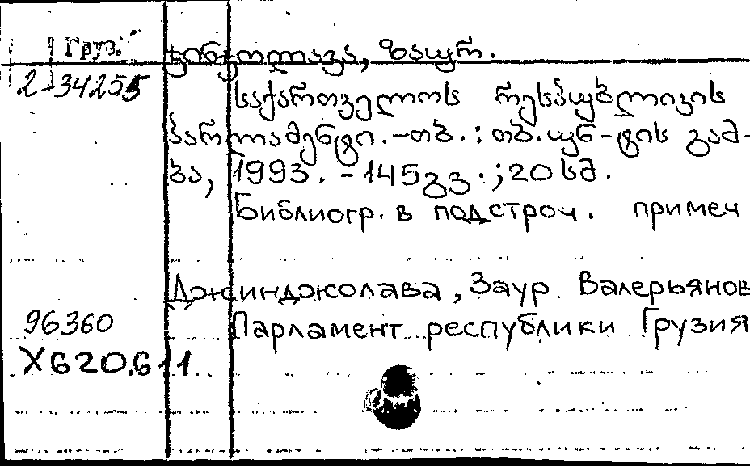 Груз. ჯინჯოლავა, ზაურ.
2-34255
საქართველოს რესპუბლიკის
პარლამენტი. -თბ. : თბ. უნ-ტის გამ-
ბა, 1993. - 145 გვ. ; 20 სმ.
Библиогр. в подстроч. примеч
Джинджолава, Заур Валерьянов
96360 Парламент республики Грузия
X620.611